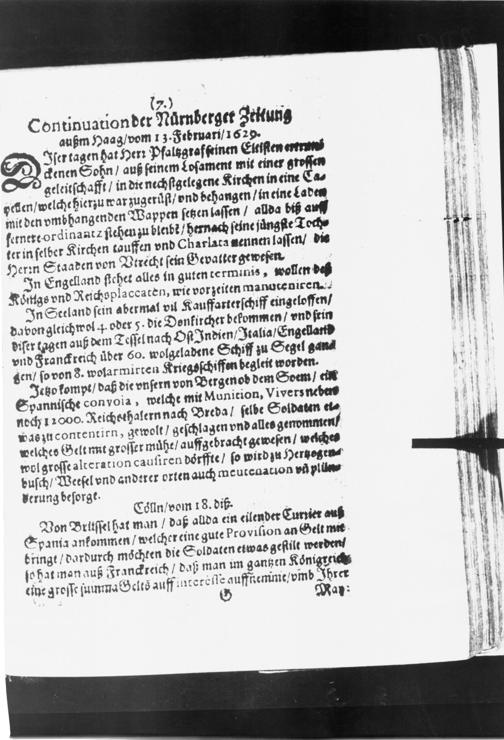 (7.)
Continuation der Nürnberger Zeitung
außm Haag/vom 13. Februari/1629.
DIser tagen hat Herr Pfaltzgraf seinen Eltisten ertrun-
ckenen Sohn / auß seinem Losament mit einer grossen
geleitschafft / in die nechstgelegene Kirchen in eine Ca-
pellen/welche hierzu war zugerüst/und behangen/in eine Laden
mit den vmbhangenden Wappen setzen lassen / allda biß auff
fernere ordinantz stehen zu bleibt/hernach seine jüngste Toch-
ter in selber Kirchen tauffen vnd Charlata nennen lassen/ die
Herrn Staaden von Vtrecht sein Gevatter gewesen.
In Engelland stehet alles in guten terminis, wollen deß
Königs vnd Reichsplaccaten, wie vor zeiten manuteniren.
In Seeland sein abermal vil Kauffarterschiff eingeloffen/
davon gleichwol 4. oder 5. die Donkircher bekommen/ vnd sein
diser tagen auß dem Tessel nach Ost Indien/Italia/Engelland
vnd Franckreich über 60. wolgeladene Schiff zu Segel gan-
gen/ so von 8. wolarmirten Kriegsschiffen begleit worden.
Jetzo kompt/ daß die vnsern von Bergen ob dem Soem/ ein
Spannische convoia, welche mit Munition, Vivers neben
noch 12000. Reichsthalern nach Breda / selbe Soldaten et-
was zu contentirn, gewolt/ geschlagen vnd alles genommen/
welches Gelt mit grosser mühe/ auffgebracht gewesen/ welches
wol grosse alteration causiren dörffte/ so wird zu Hertzogen-
busch/ Weesel vnd anderer orten auch meutenation vñ plün-
derung besorge.
Cölln/vom 18. diß.
Von Brüssel hat man / daß allda ein eilender Currier auß
Spania ankommen/ welcher eine gute Provision an Gelt mit
bringt/ dardurch möchten die Soldaten etwas gestilt werden/
so hat man auß Franckreich / daß man im gantzen Königreich
eine grosse summa Gelts auff interesse auffnemme/vmb Ihrer
G
May: